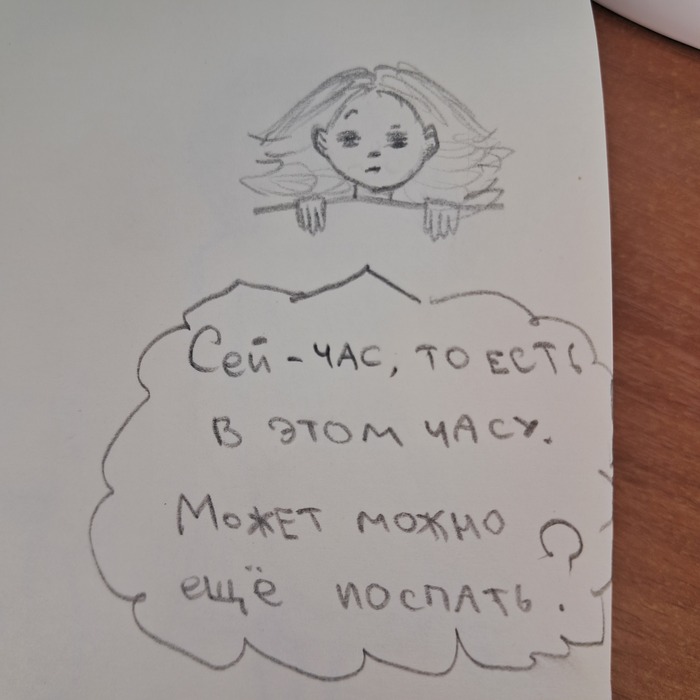 Сей-час, то есть
в этом часу.
Может можно
ещё поспать?